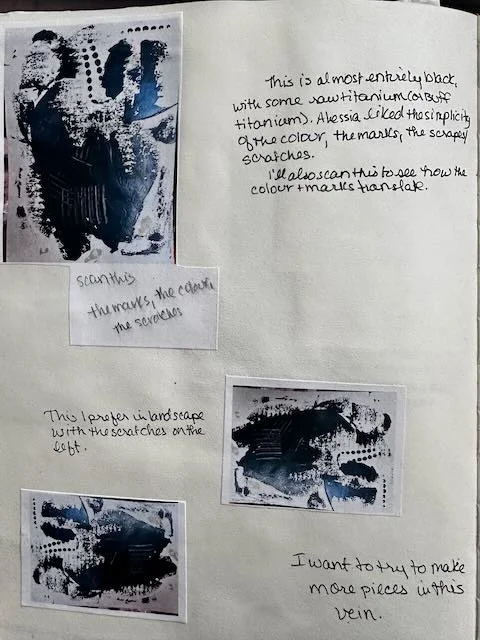 This is almost entirely black,
with some raw titanium (or Buff
titanium). Alessia liked the simplicity
of the colour, the marks, the scrapes/
scratches.
I'll also scan this to see how the
colour + marks translate.
scan this
the marks, the colour,
the scratches
This I prefer in landscape
with the scratches on the
left.
I want to try to make
more pieces in this
vein.